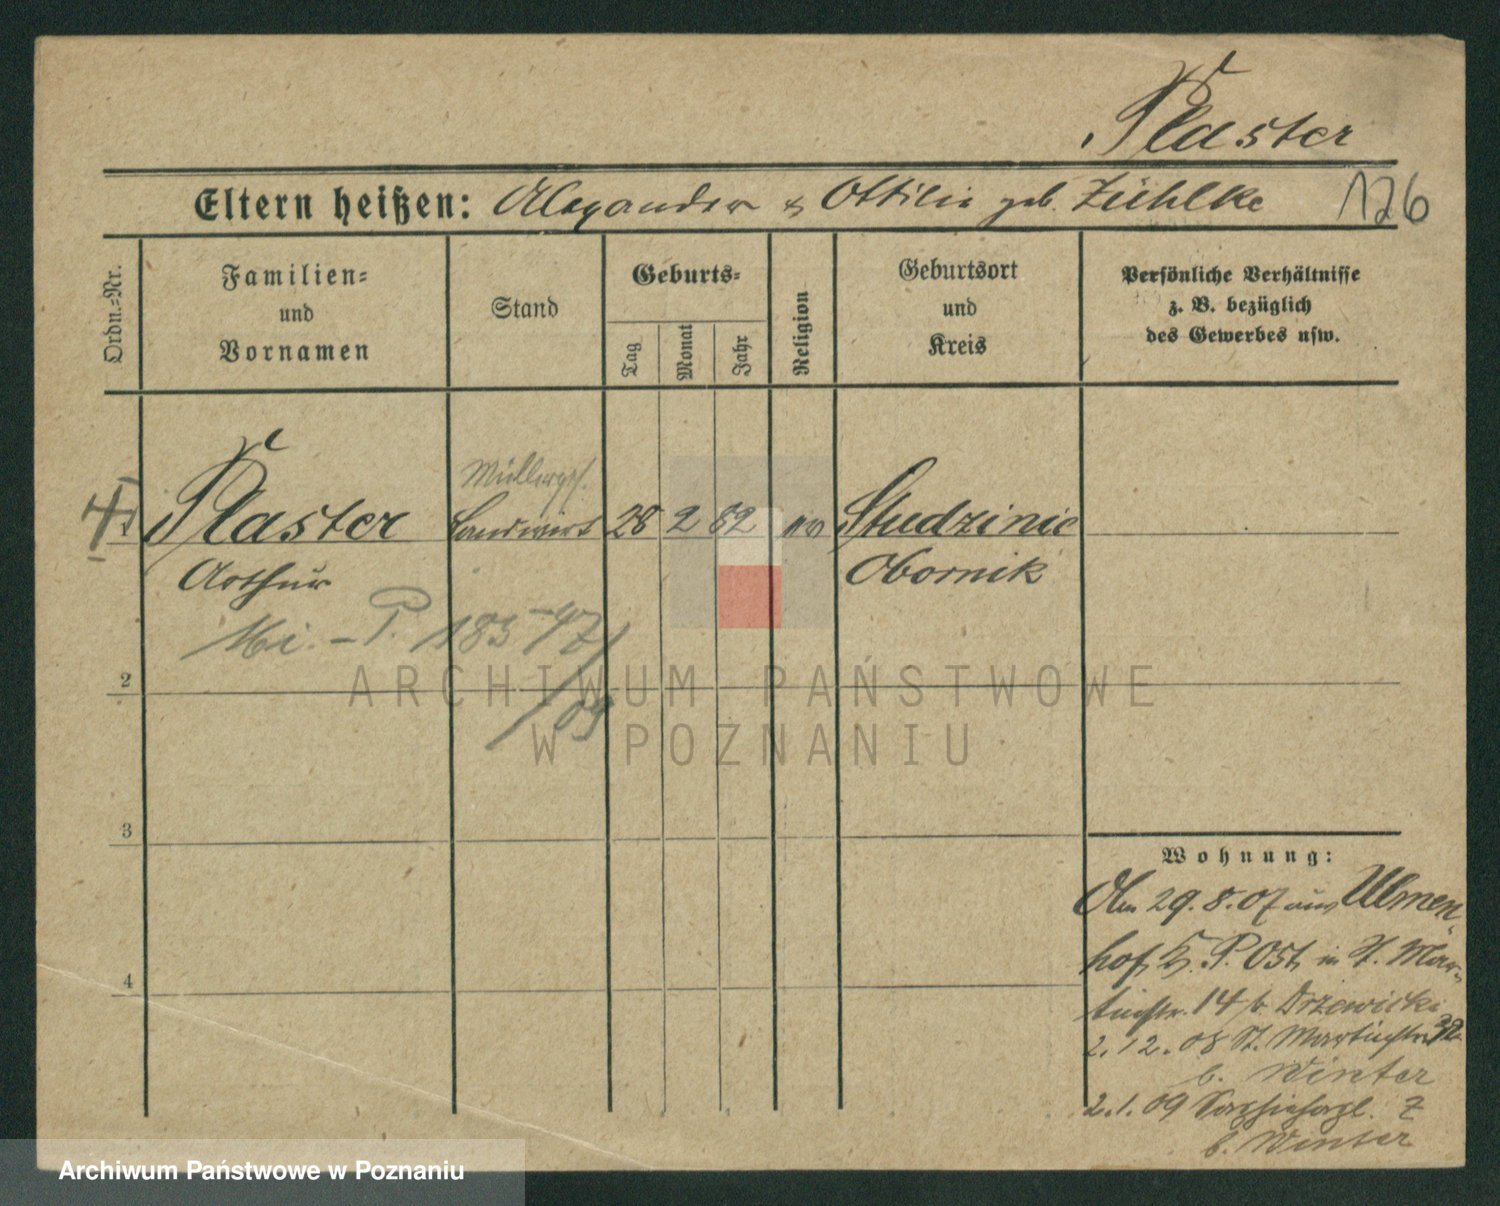 Plaster
Eltern heißen: Alexander & Ottilie geb. Zühlke 126
Ordn.-Nr.
Familien-
und
Vornamen
Stand
Geburts-
Tag
Monat
Jahr
Religion
Geburtsort
und
Kreis
Persönliche Verhältnisse
z. B. bezüglich
des Gewerbes usw.
Müllergs.
1 Plaster Landwirt 28 2 82 ev Studzinic
Arthur Obornik
Mi. - P. 183
09
2
ARCHIWUM PAŃSTWOWE
W POZNANIU
3
4
Wohnung:
29.8.07 aus Ulmen
hof, P. Ost, in St. Mar-
tinstr. 14 b. Drzewicki
2.12.08 St. Martinstr. 32
b. Winter
2.1.09 7
b. Winter
Archiwum Państwowe w Poznaniu